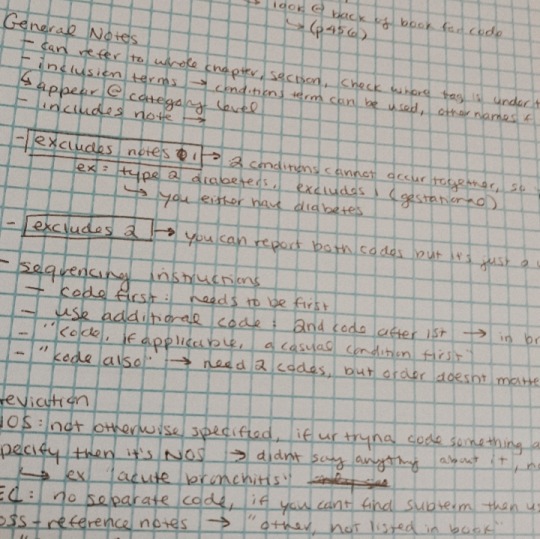 look @ back of book for code
↳ (p456)
General Notes
- can refer to whole chapter, section, check where tag is under t
- inclusion terms → conditions term can be used, other names f
↳ appear @ category level
- includes note →
- excludes notes 1 → 2 conditions cannot occur together, so
ex: type 2 diabetes, excludes 1 (gestational)
↳ you either have diabetes
- excludes 2 → you can report both codes but it's just a
- sequencing instructions
- code first: needs to be first
- use additional code: 2nd code after 1st → in br
- "code, if applicable, a casual condition first"
- "code also" → need 2 codes, but order doesnt matte
eviation
NOS: not otherwise specified, if ur tryna code something a
pecify then it's NOS → didnt say anything about it, n
↳ ex "acute bronchitis"
EC: no separate code, if you cant find subterm then u
oss-reference notes → "other, not listed in book"